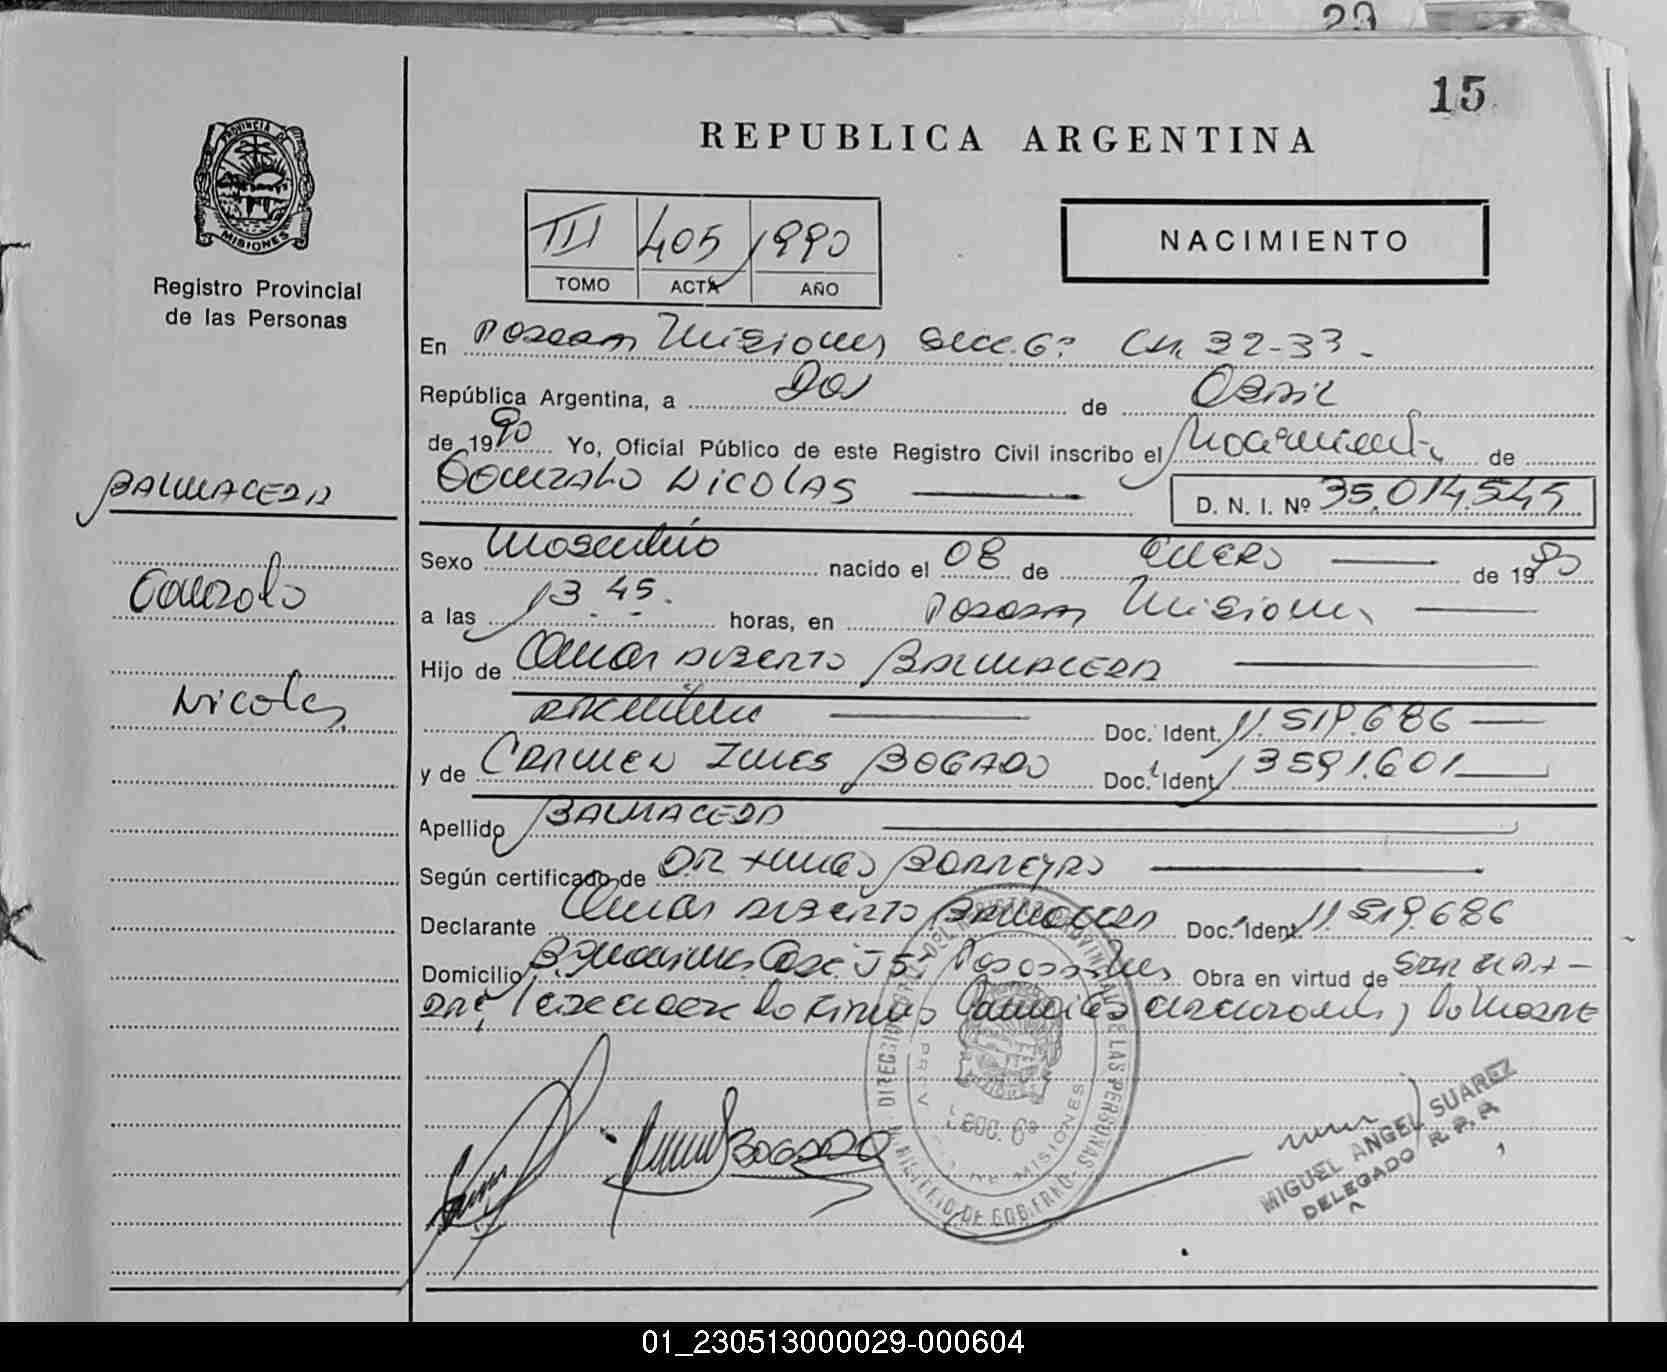 29
15
REPUBLICA ARGENTINA
PROVINCIA DE
MISIONES
Registro Provincial
de las Personas
III 405 1990
TOMO ACTA AÑO
NACIMIENTO
En Posadas Misiones Secc. 6ª Ch. 32-33.
República Argentina, a Dos de Abril
de 1990 Yo, Oficial Público de este Registro Civil inscribo el Nacimiento de
GONZALO NICOLAS D. N. I. Nº 35.014.545
BALMACEDA
Gonzalo
Nicolas
Sexo Masculino nacido el 08 de ENERO de 1990
a las 13.45. horas, en Posadas Misiones
Hijo de Omar ALBERTO BALMACEDA
Argentina Doc. Ident. 11.519.686
y de CARMEN INES BOGADO Doc. Ident. 13591.601
Apellido BALMACEDA
Según certificado de DR BARREYRO
Declarante Omar ALBERTO BALMACEDA Doc. Ident. 11.519.686
Domicilio Casa 75 Posadas Mnes Obra en virtud de
los la Madre
DIRECCION DEL REGISTRO PROVINCIAL DE LAS PERSONAS
MINISTERIO DE GOBIERNO
PROV. DE MISIONES
SECC. 6ª
BOGADO
MIGUEL ANGEL SUAREZ
DELEGADO R. P. P.
01_230513000029-000604